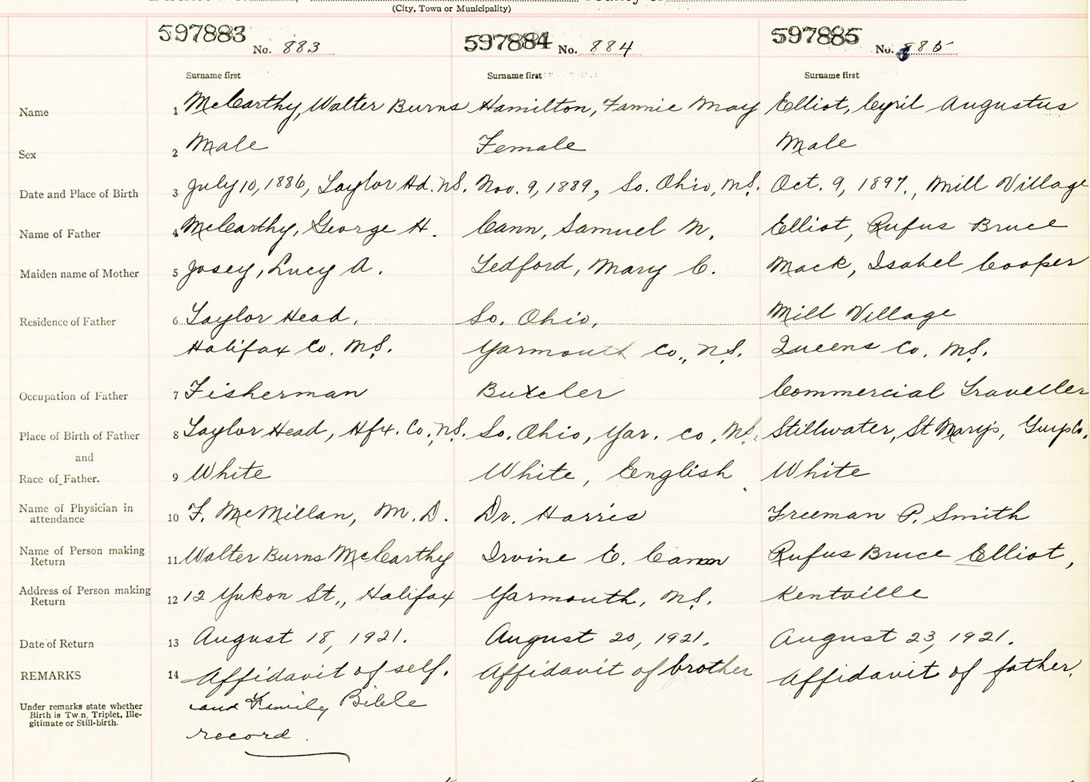 (City, Town or Municipality)
597883 No. 883 597884 No. 884 597885 No. 885
Surname first Surname first Surname first
Name 1 McCarthy, Walter Burns Hamilton, Fannie May Elliot, Cyril Augustus
Sex 2 Male Female Male
Date and Place of Birth 3 July 10, 1886, Taylor Hd. N.S. Nov. 9, 1889, So. Ohio, N.S. Oct. 9, 1897, Mill Village
Name of Father 4 McCarthy, George H. Cann, Samuel N. Elliot, Rufus Bruce
Maiden name of Mother 5 Josey, Lucy A. Tedford, Mary C. Mack, Isabel Cooper
Residence of Father 6 Taylor Head, So. Ohio, Mill Village
Halifax Co. N.S. Yarmouth Co., N.S. Queens Co. N.S.
Occupation of Father 7 Fisherman Butcher Commercial Traveller
Place of Birth of Father 8 Taylor Head, Hfx. Co., N.S. So. Ohio, Yar. Co, N.S. Stillwater, St Mary's, Guys Co.
and
Race of Father. 9 White White, English White
Name of Physician in
attendance 10 F. McMillan, M.D. Dr. Harris Freeman P. Smith
Name of Person making
Return 11 Walter Burns McCarthy Irvine E. Cann Rufus Bruce Elliot,
Address of Person making
Return 12 12 Yukon St., Halifax Yarmouth, N.S. Kentville
Date of Return 13 August 18, 1921. August 20, 1921. August 23, 1921.
REMARKS 14 Affidavit of self. Affidavit of brother Affidavit of father.
Under remarks state whether
Birth is Tw n, Triplet, Ille-
gitimate or Still-birth.
and Family Bible
record.